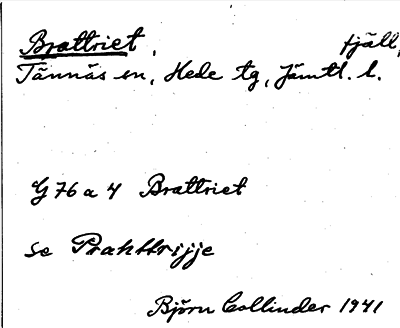 Brattriet, fjäll,
Tännäs sn, Hede tg, Jämtl. l.
G 76 a 4 Brattriet
se Prahttrijje
Björn Collinder 1941